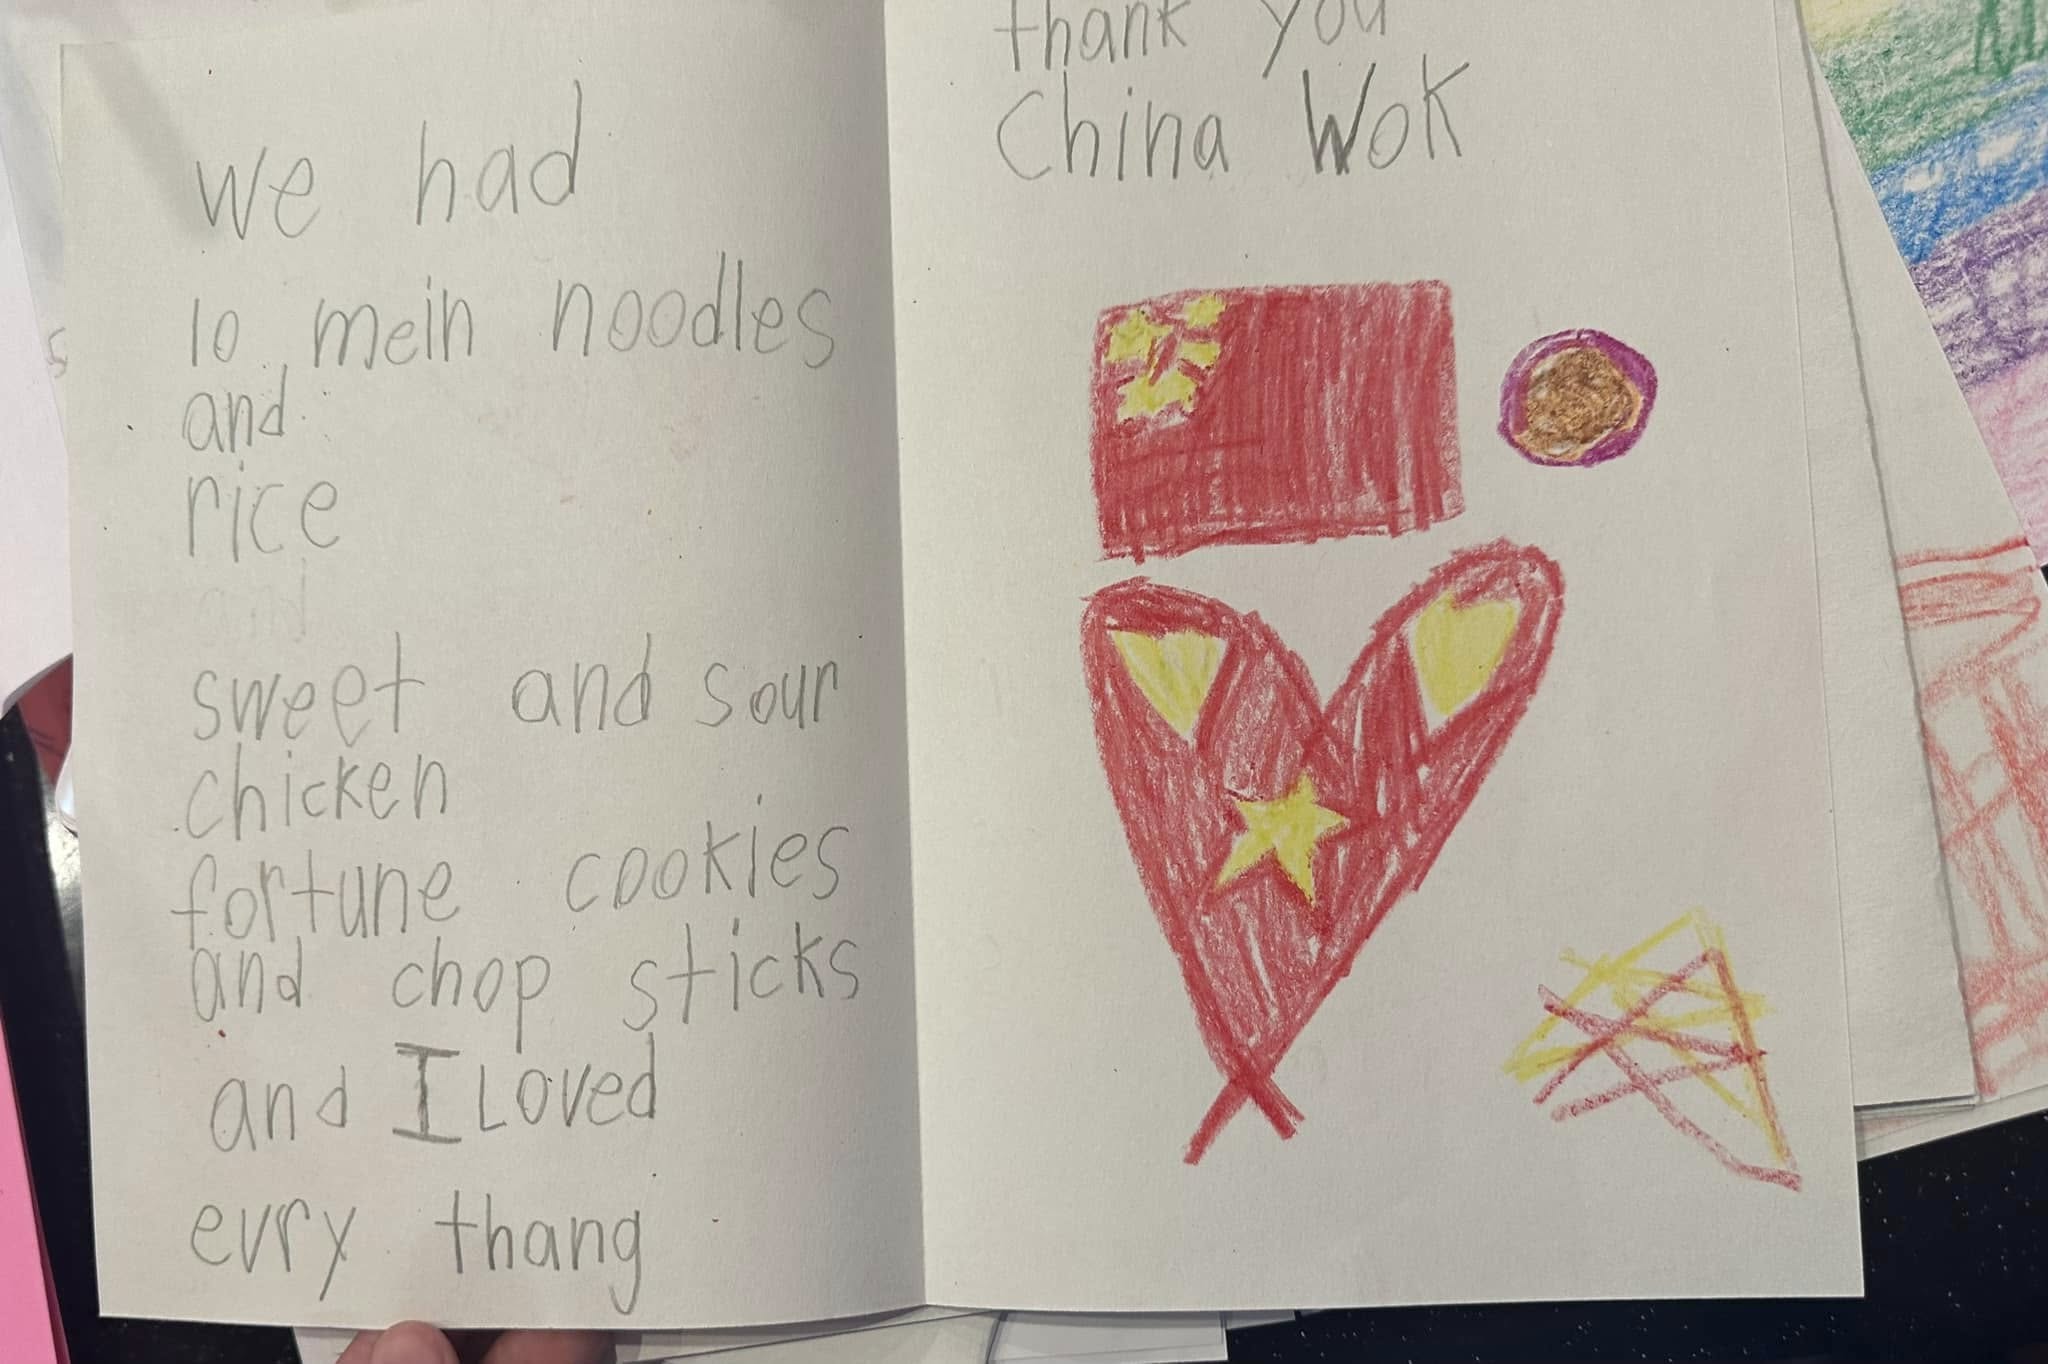 we had
lo mein noodles
and
rice
and
sweet and sour
chicken
fortune cookies
and chop sticks
and I Loved
evry thang
thank you
China Wok